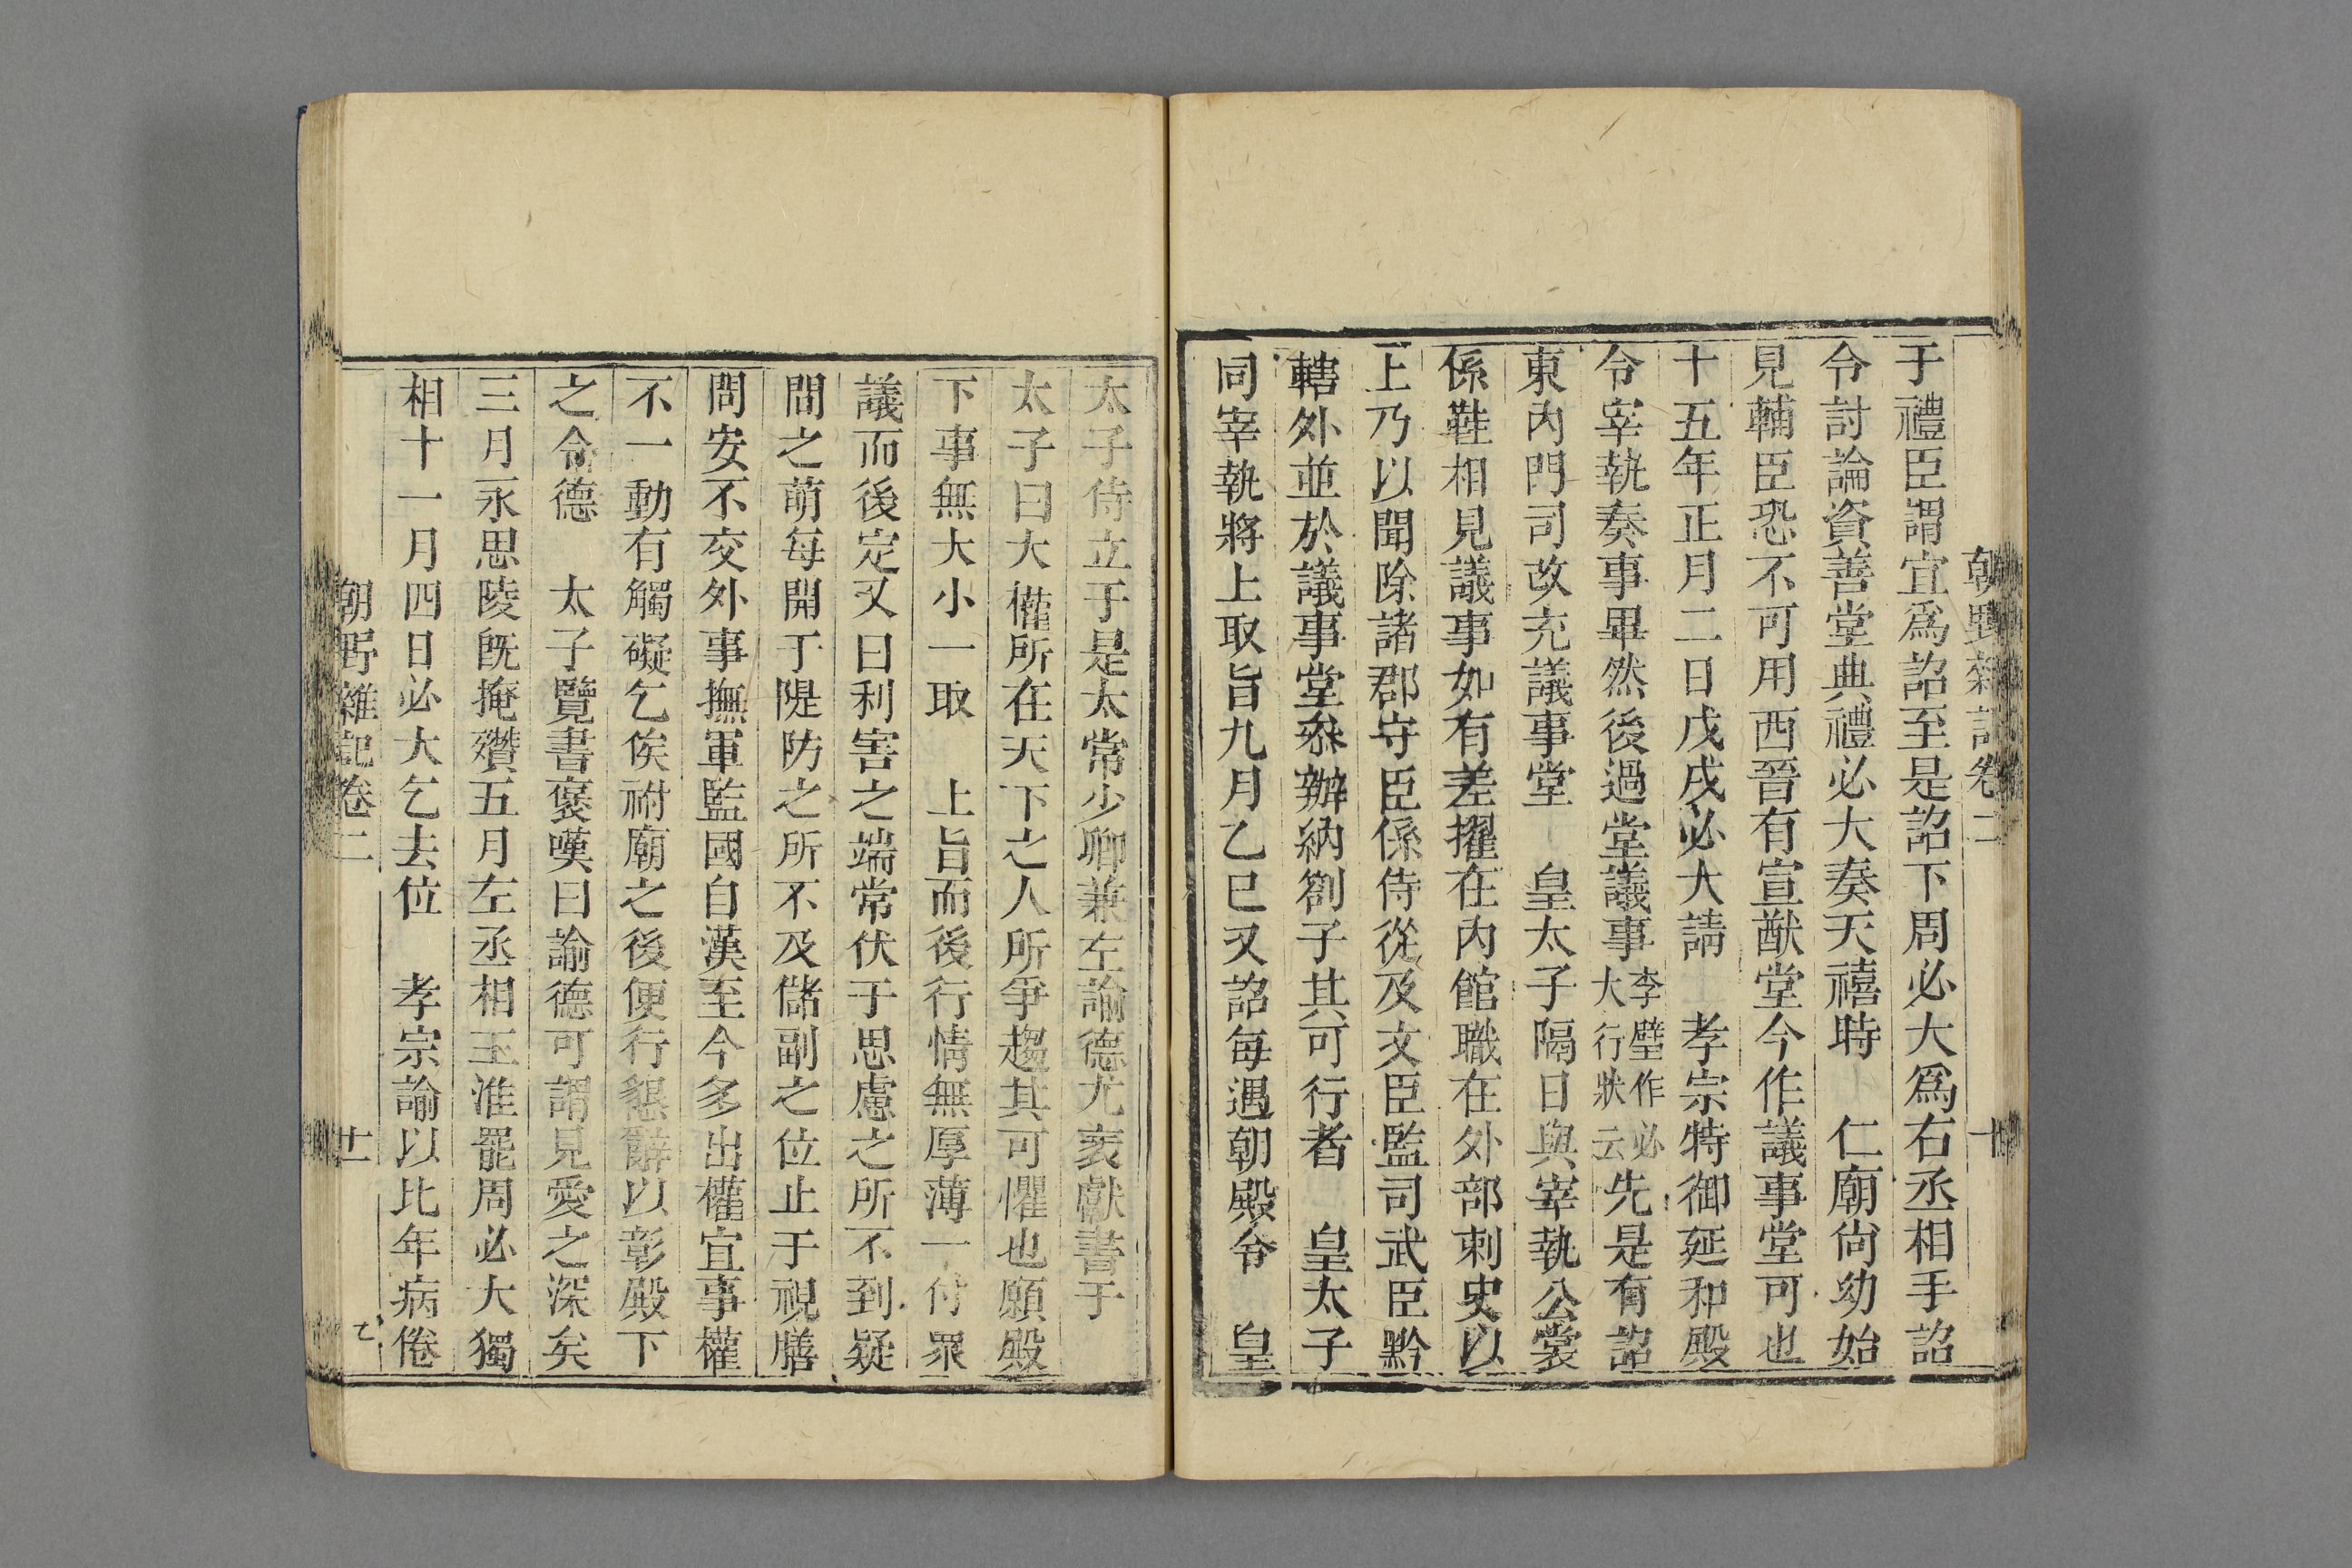 朝野雜記卷二 十
于禮臣謂宜爲詔至是詔下周必大爲右丞相手詔
令討論資善堂典禮必大奏天禧時 仁廟尙幼始
見輔臣恐不可用西晉有宣猷堂今作議事堂可也
十五年正月二日戊戌必大請 孝宗特御延和殿
令宰執奏事畢然後過堂議事李壁作必大行狀云先是有詔
東內門司改充議事堂 皇太子隔日與宰執公裳
係鞋相見議事如有差擢在內館職在外部刺史以
上乃以聞除諸郡守臣係侍從及文臣監司武臣黔
轄外並於議事堂叅辦納劄子其可行者 皇太子
同宰執將上取旨九月乙巳又詔每遇朝殿令 皇
太子侍立于是太常少卿兼左諭德尤袤獻書于
太子曰大權所在天下之人所爭趨其可懼也願殿
下事無大小一取 上旨而後行情無厚薄一付衆
議而後定又曰利害之端常伏于思慮之所不到疑
間之萌每開于隄防之所不及儲副之位止于視膳
問安不交外事撫軍監國自漢至今多出權宜事權
不一動有觸礙乞俟祔廟之後便行懇辭以彰殿下
之令德 太子覽書褒嘆曰諭德可謂見愛之深矣
三月永思陵旣掩欑五月左丞相王淮罷周必大獨
相十一月四日必大乞去位 孝宗諭以比年病倦
朝野雜記卷二 十一 七